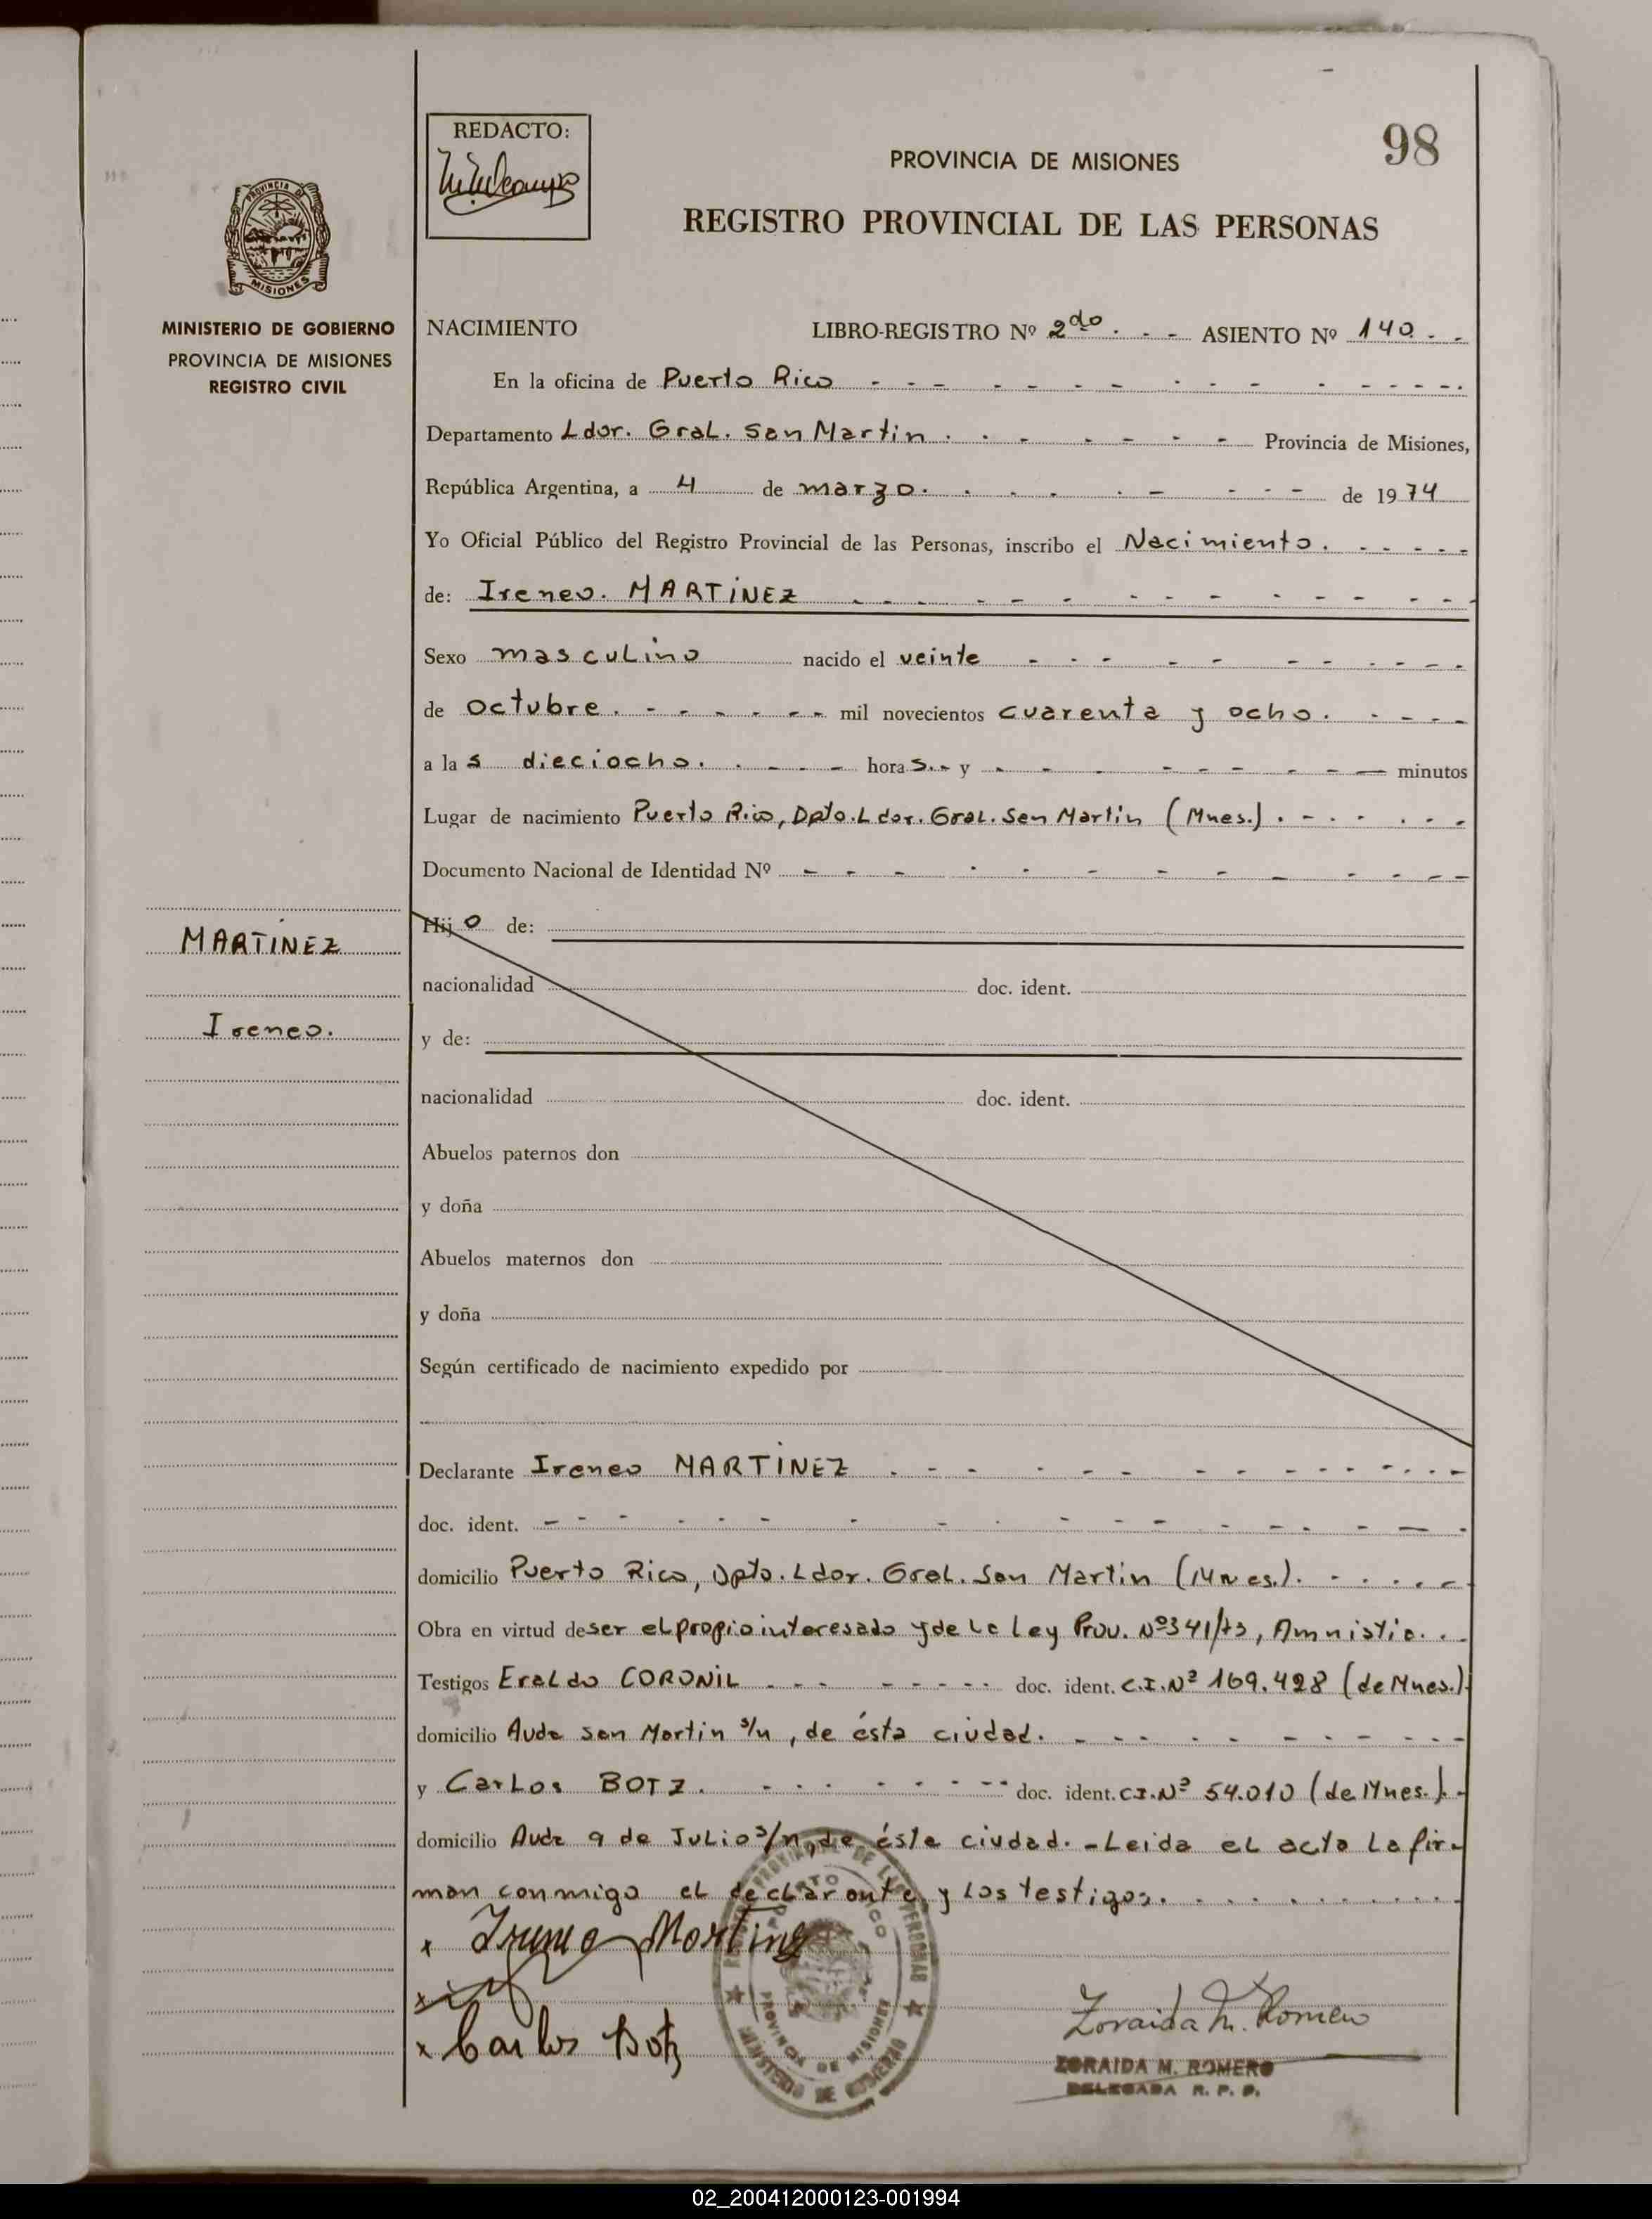 98
REDACTO:
PROVINCIA DE MISIONES
REGISTRO PROVINCIAL DE LAS PERSONAS
PROVINCIA DE
MISIONES
MINISTERIO DE GOBIERNO
PROVINCIA DE MISIONES
REGISTRO CIVIL
NACIMIENTO LIBRO-REGISTRO Nº 2do. - - ASIENTO Nº 140. - -
En la oficina de Puerto Rico
Departamento Ldor. Gral. San Martin Provincia de Misiones,
República Argentina, a 4 de marzo. de 1974
Yo Oficial Público del Registro Provincial de las Personas, inscribo el Nacimiento.
de: Ireneo. MARTINEZ
Sexo masculino nacido el veinte
de octubre. mil novecientos cuarenta y ocho.
a las dieciocho. horas.- y - minutos
Lugar de nacimiento Puerto Rico, Dpto. Ldor. Gral. San Martin (Mnes.).
Documento Nacional de Identidad Nº
MARTINEZ
Ireneo.
Hijo de:
nacionalidad doc. ident.
y de:
nacionalidad doc. ident.
Abuelos paternos don
y doña
Abuelos maternos don
y doña
Según certificado de nacimiento expedido por
Declarante Ireneo MARTINEZ
doc. ident.
domicilio Puerto Rico, Dpto. Ldor. Gral. San Martin (Mnes.).
Obra en virtud de ser el propio interesado y de la Ley Prov. Nº 341/73, Amnistia.
Testigos Eraldo CORONIL doc. ident. C.I. Nº 169.428 (de Mnes.)
domicilio Avda San Martin s/n, de ésta ciudad.
y Carlos BOTZ. doc. ident. C.I. Nº 54.010 (de Mnes.).-
domicilio Avda 9 de Julio s/n, de ésta ciudad. - Leida el acta la fir-
man conmigo el declarante y los testigos.
x Ireneo Martinez
x
x Carlos Botz
REGISTRO PROVINCIAL DE LAS PERSONAS
PUERTO RICO
PROVINCIA DE MISIONES
MINISTERIO DE GOBIERNO
Zoraida M. Romero
ZORAIDA M. ROMERO
DELEGADA R. P. P.
02_200412000123-001994